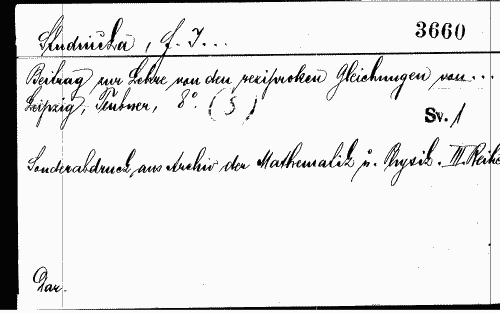 3660
Studnička, F. I...
Beitrag zur Lehre von den reziproken Gleichungen von...
Leipzig, Teubner, 8°. (5)
Sv. 1
Sonderabdruck aus Archiv der Mathematik u. Physik. III. Reihe
Dar.